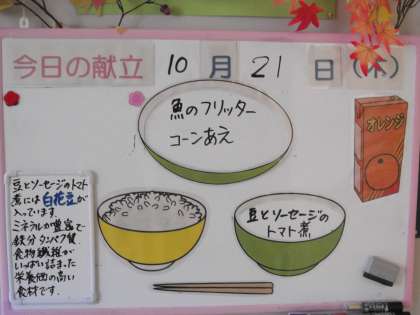 今日の献立 10月21日(木)
魚のフリッター
コーンあえ
オレンジ
豆とソーセージの
トマト煮
豆とソーセージのトマト
煮には白花豆が
入っています。
ミネラルが豊富で
鉄分 タンパク質
食物繊維が
いっぱい詰まった
栄養価の高い
食材です。